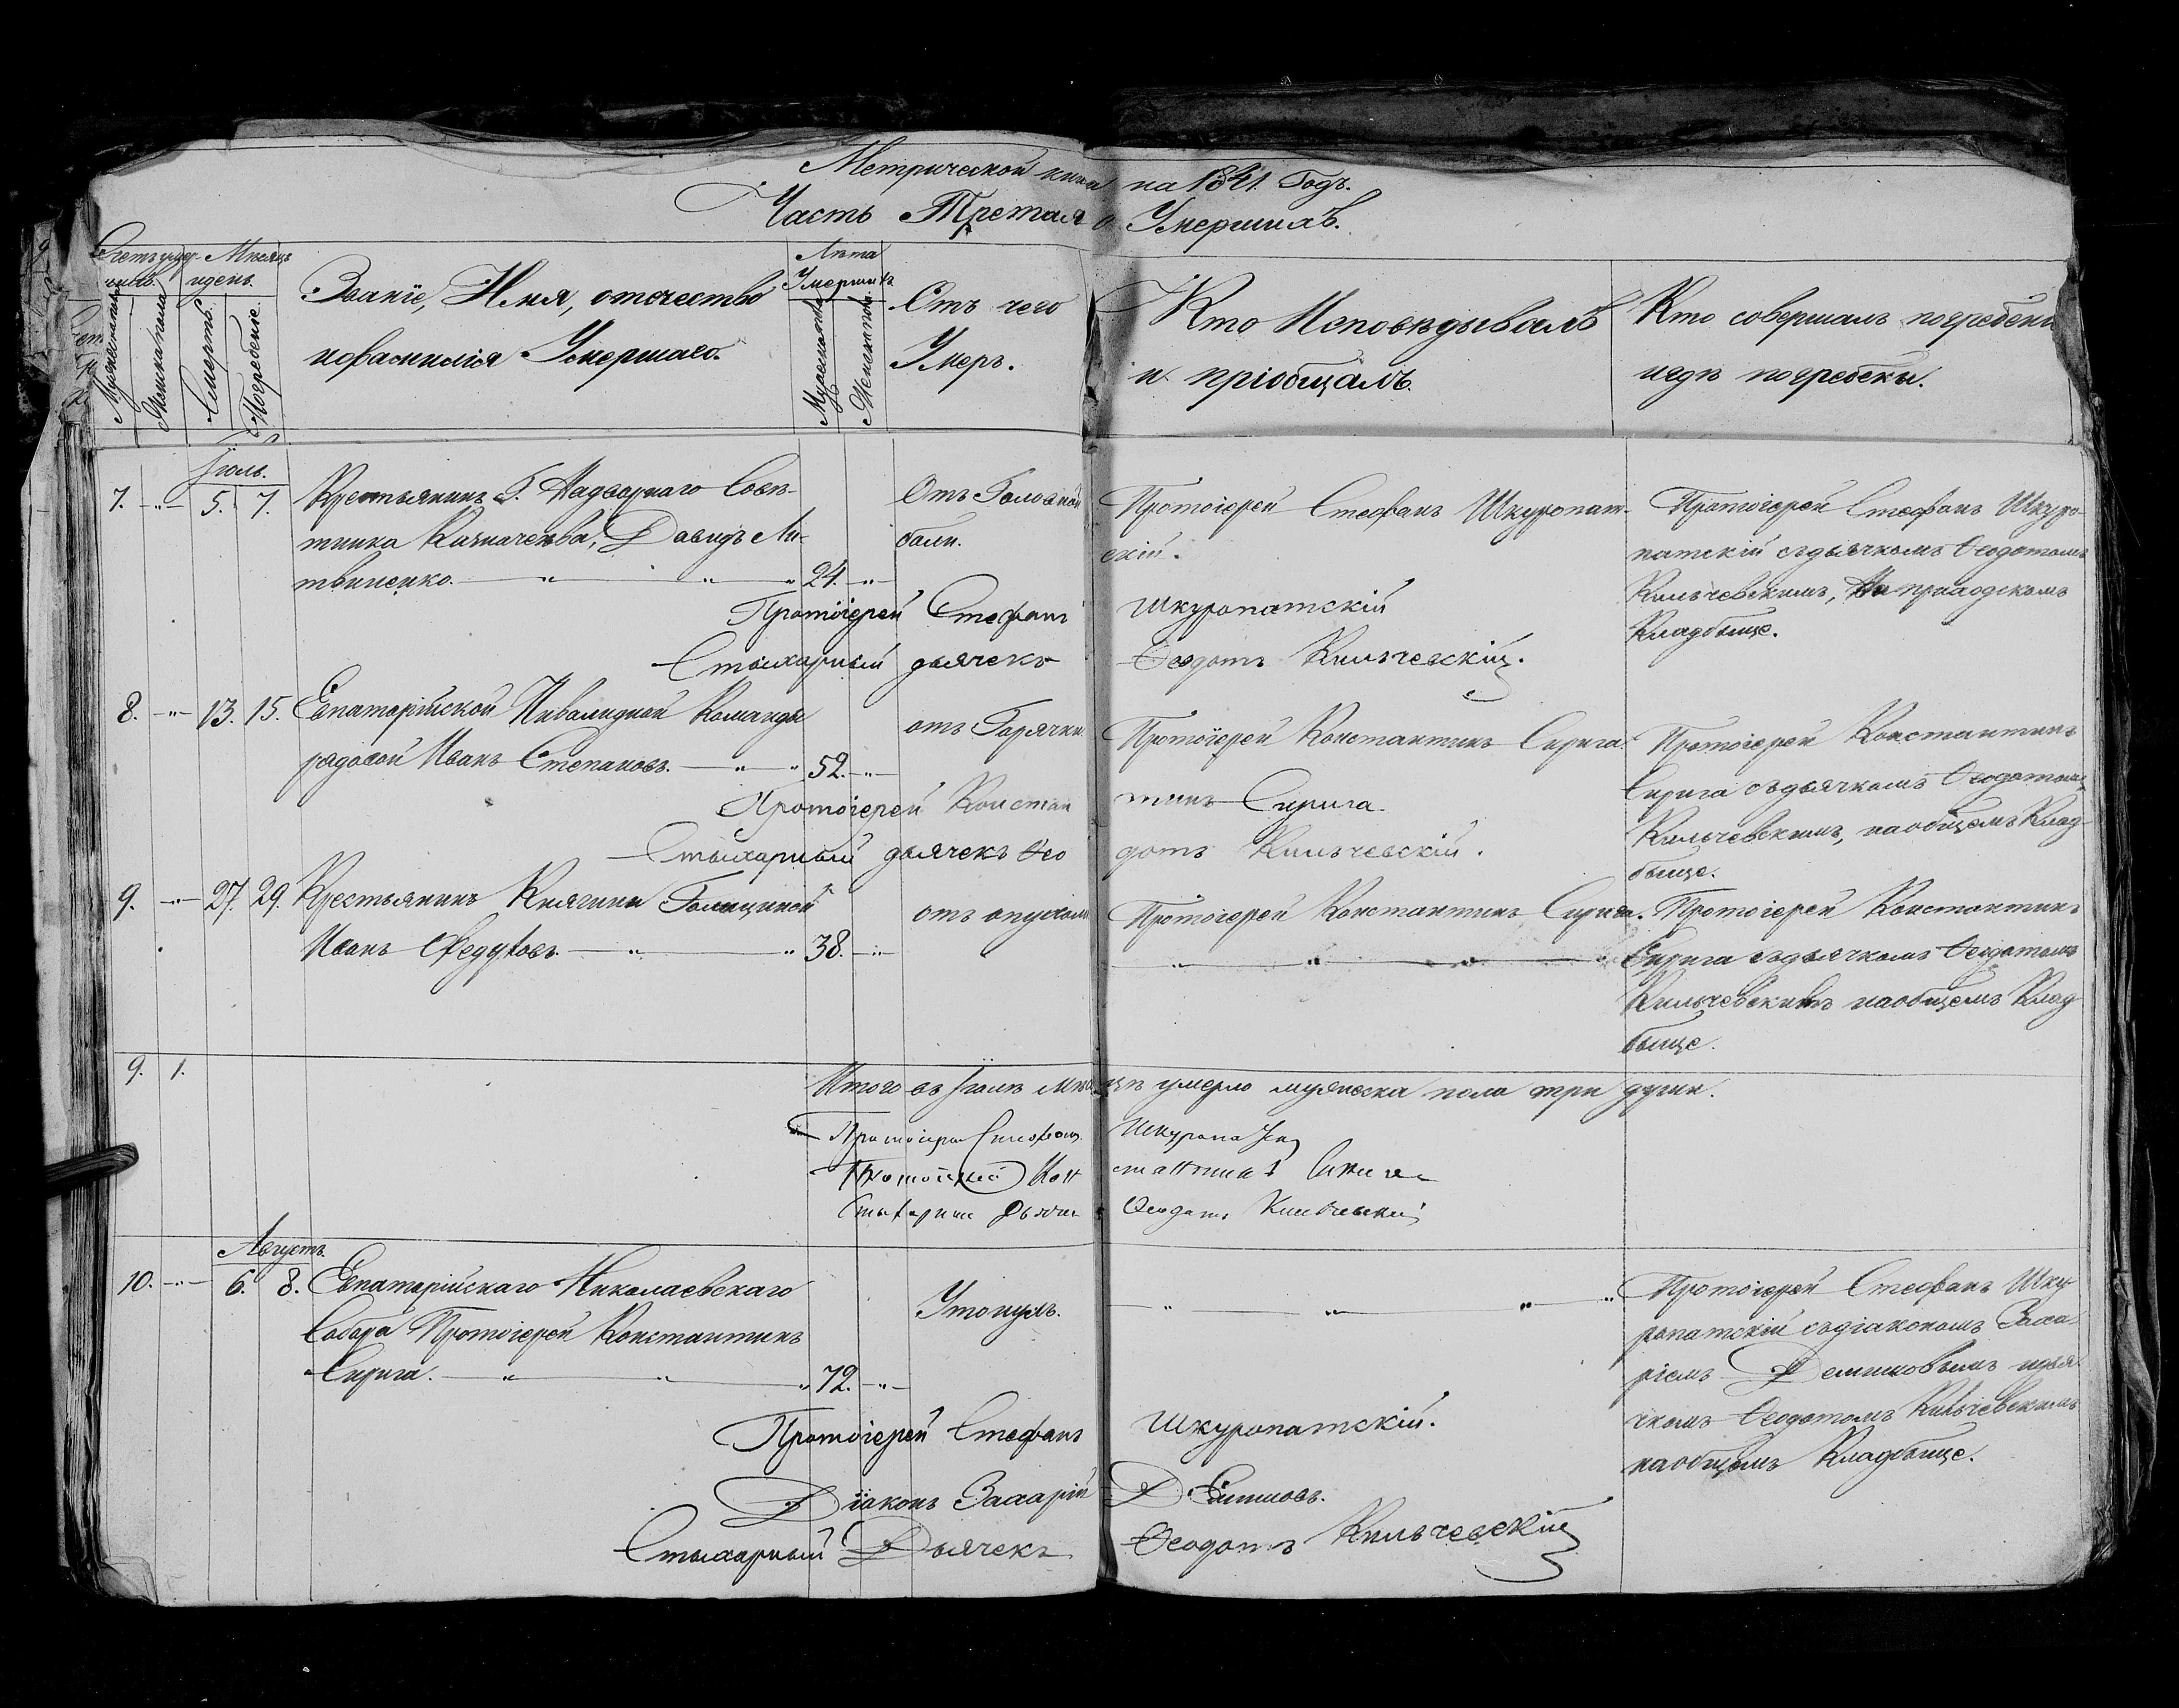 Метрической книги на 1841 Годъ.
Часть Третая о Умершихъ.
Счетъ умер-
шихъ.
Мужеска пола
Женска пола
Мѣсяцъ
и день.
Смерть.
Погребеніе.
Званіе, Имя, отчество
и фамилія Умершаго.
Лѣта
Умершихъ
Мужеска пола
Женска пола
Отъ чего
Умеръ.
Кто Исповѣдывалъ
и пріобщалъ.
Кто совершалъ погребеніе
и гдѣ погребены.
Іюль.
7. —"— 5. 7. Крестьянинъ Г. Надворнаго Совѣ-
тника Казначеева, Давидъ Ли-
твиненко. — " — " — " 24. —"—
Отъ Головной
боли.
Протоіерей Стефанъ Шкуропат-
скій.
Протоіерей Стефанъ Шкуро-
патскій съ дьячкомъ Ѳеодотомъ
Кильчевскимъ, На приходскомъ
Кладбище.
Протоіерей Стефанъ Шкуропатскій
Стихарный дьячекъ Ѳеодотъ Кильчевскій.
8. —"— 13. 15. Евпаторійской Инвалидной Команды
рядовой Иванъ Степановъ. — " — " 52. —"—
отъ Горячки.
Протоіерей Константинъ Спирига.
Протоіерей Константинъ
Спирига съ дьячкомъ Ѳеодотомъ
Кильчевскимъ, на общемъ Клад-
бище.
Протоіерей Константинъ Спирига
Стихарный дьячекъ Ѳеодотъ Кильчевскій.
9. —"— 27. 29. Крестьянинъ Княгини Голициной
Иванъ Федутовъ. — " — " 38. —"—
отъ опухоли
Протоіерей Константинъ Спирига.
— " — " — " —
Протоіерей Константинъ
Спирига съ дьячкомъ Ѳеодотомъ
Кильчевскимъ на общемъ Клад-
бище.
9. 1.
Итого въ Іюлѣ мѣсяцѣ умерло мужеска пола три души.
Протоіерей Стефанъ Шкуропатскій
Протоіерей Константинъ Спирига
Стихарный Дьячекъ Ѳеодотъ Кильчевскій
Августъ.
10. —"— 6. 8. Евпаторійскаго Николаевскаго
Собора Протоіерей Константинъ
Спирига. — " — " — " 72. —"—
Утонулъ.
— " — " — " — "
Протоіерей Стефанъ Шку-
ропатскій съ діакономъ Заха-
ріемъ Демиховымъ и дья-
чкомъ Ѳеодотомъ Кильчевскимъ
на общемъ Кладбище.
Протоіерей Стефанъ Шкуропатскій.
Діаконъ Захарій
Стихарный Дьячекъ Ѳеодотъ Кильчевскій